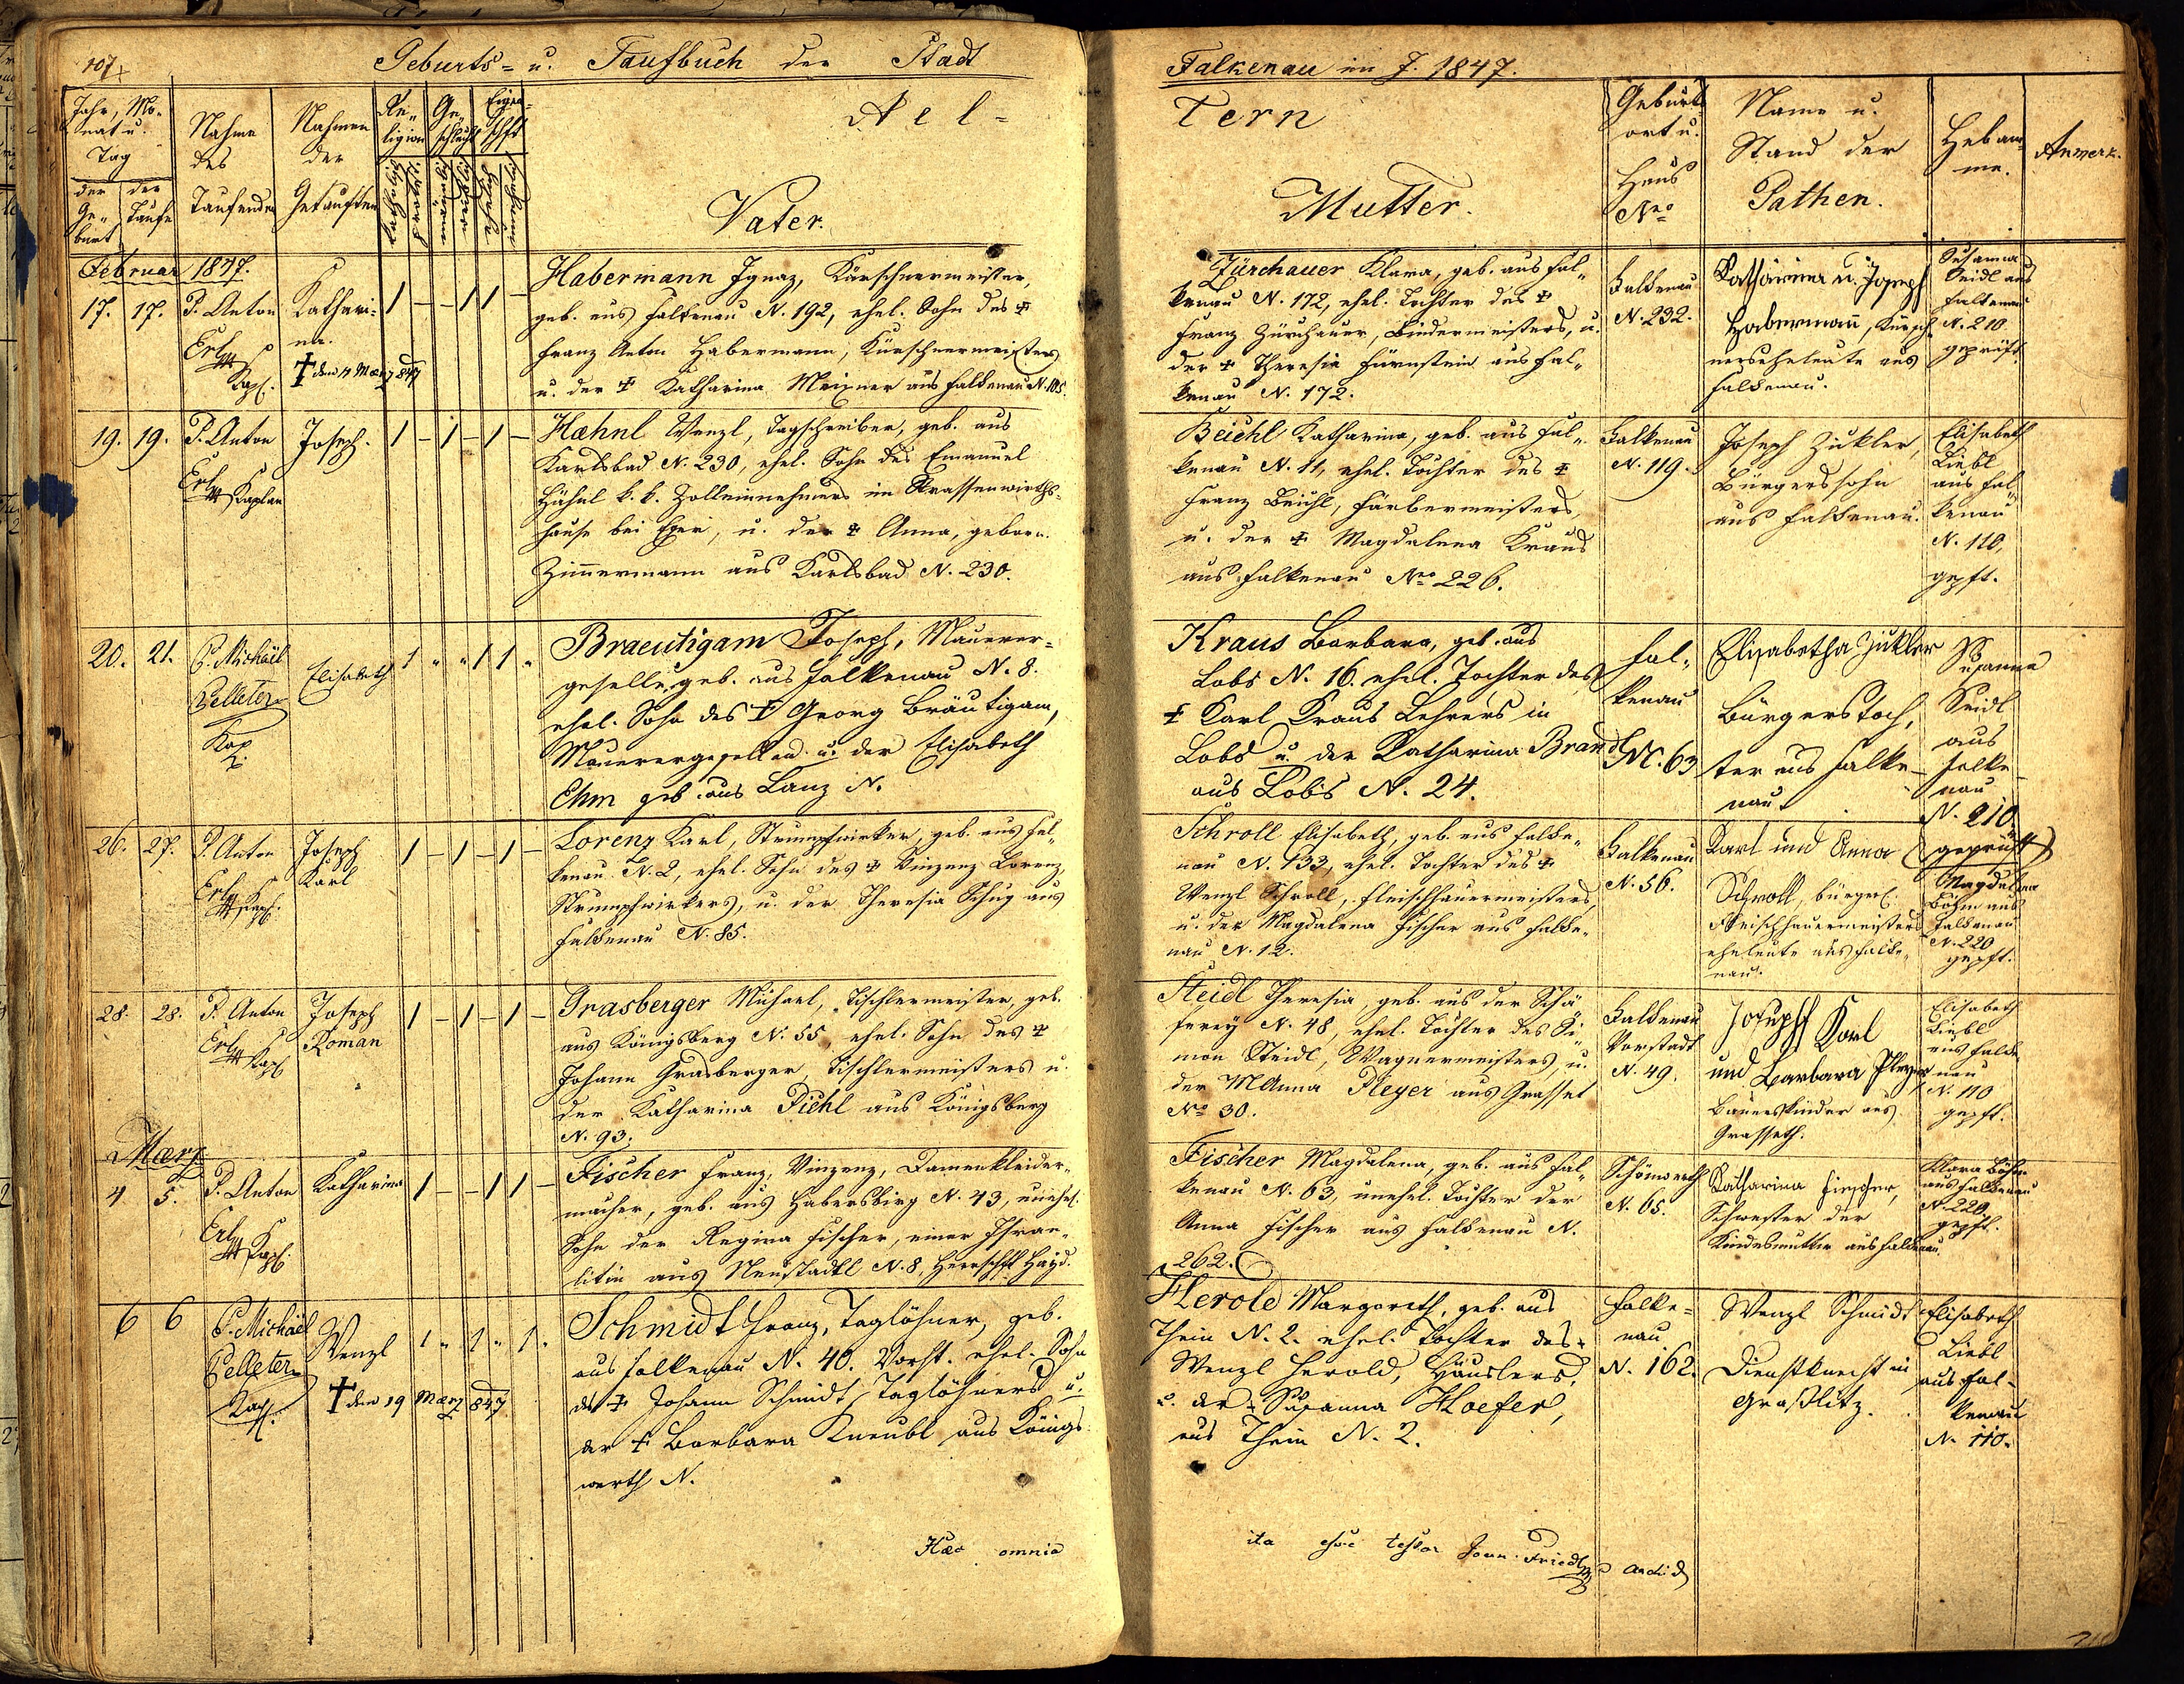 107
Geburts- u. Taufbuch der Stadt
Falkenau im J. 1847.
Jahr, Mo-
nat u.
Tag
der
Ge-
burt
der
Taufe
Nahme
des
Taufenden
Nahmen
der
Getauften
Re-
ligion
Ge-
schlecht
Ael-
tern
Vater.
Mutter.
Geburts
ort u.
Haus
Nro
Name u.
Stand der
Pathen.
Hebam-
me.
Anmerk.
Februar 1847.
17. 17. P. Anton
Erl
Kapl.
Kathari-
na.
† den 17 März 847
1 – – 1 1 –
Habermann Ignaz, Kürschnermeister,
geb. aus Falkenau N. 192, ehel. Sohn des †
Franz Anton Habermann, Kürschnermeisters
u. der † Katharina Meixner aus Falkenau N. 105.
Zürchauer Klara, geb. aus Fal-
kenau N. 172, ehel. Tochter des †
Franz Zürchauer, Bindermeisters, u.
der † Theresia Fürnstein aus Fal-
kenau N. 172.
Falkenau
N. 232.
Katharina u. Joseph
Habermann, Kürsch-
nerseheleute aus
Falkenau.
Susanna
Seidl aus
Falkenau
N. 210
geprüft.
19. 19. P. Anton
Erl
Kaplan
Joseph.
1 – 1 – 1 –
Haehnl Wenzl, Tagschreiber, geb. aus
Karlsbad N. 230, ehel. Sohn des Emanuel
Hähnl k. k. Zolleinnehmers im Strassenwirths-
hause bei Eger, u. der † Anna, geborn.
Zimmermann aus Karlsbad N. 230.
Beichl Katharina, geb. aus Fal-
kenau N. 11, ehel. Tochter des †
Franz Beichl, Färbermeisters,
u. der † Magdalena Kraus
aus Falkenau Nro 226.
Falkenau
N. 119.
Joseph Zükler,
Bürgerssohn
aus Falkenau.
Elisabeth
Liebl
aus Fal-
kenau
N. 110,
gepft.
20. 21. P. Michäel
Pelleter
Kap.
Elisabeth
1 " " 1 1 "
Braeutigam Joseph, Maurer-
geselle, geb. aus Falkenau N. 8.
ehel. Sohn des † Georg Bräutigam,
Maurergesellen u. der Elisabeth
Ehm geb. aus Lanz N.
Kraus Barbara, geb. aus
Lobs N. 16. ehel. Tochter des
† Karl Kraus Lehrers in
Lobs u. der Katharina Brandl
aus Lobs N. 24.
Fal-
kenau
N. 63
Elisabetha Zükler
Bürgerstoch-
ter aus Falke-
nau
Susanna
Seidl
aus
Falke-
nau
N. 210.
(geprüft)
26. 27. P. Anton
Erl
Kapl.
Joseph
Karl
1 – 1 – 1 –
Lorenz Karl, Strumpfwirker, geb. aus Fal-
kenau N. 2, ehel. Sohn des † Vinzenz Lorenz,
Strumpfwirkers, u. der Theresia Schug aus
Falkenau N. 85.
Schroll Elisabeth, geb. aus Falke-
nau N. 133, ehel. Tochter des †
Wenzl Schroll, Fleischhauermeisters,
u. der Magdalena Fischer aus Falke-
nau N. 12.
Falkenau
N. 56.
Karl und Anna
Schroll, bürgerl.
Fleischhauermeisters
eheleute aus Falke-
nau.
Magdalena
Böhm aus
Falkenau
N. 220
gepft.
28. 28. P. Anton
Erl
Kapl
Joseph
Roman
1 – 1 – 1 –
Grasberger Michael, Tischlermeister, geb.
aus Königsberg N. 55, ehel. Sohn des †
Johann Grasberger, Tischlermeisters u.
der Katharina Pichl aus Königsberg
N. 93.
Steidl Theresia, geb. aus der Schä-
ferey N. 48, ehel. Tochter des Si-
mon Steidl, Wagnermeisters, u.
der MAnna Pleyer aus Grasset
No 30.
Falkenau
Vorstadt
N. 49.
Joseph Karl
und Barbara Pleyer
Bauerskinder aus
Grasseth.
Elisabeth
Liebl
aus Falke-
nau
N. 110
gepft.
Maerz
4. 5. P. Anton
Erl
Kapl.
Katharina
1 – – 1 1 –
Fischer Franz, Vinzenz, Damenkleider-
macher, geb. aus Habersbirg N. 43, unehel.
Sohn der Regina Fischer, einer Israe-
litin aus Neustadtl N. 8, Herrschft Haid.
Fischer Magdalena, geb. aus Fal-
kenau N. 63, unehel. Tochter der
Anna Fischer aus Falkenau N.
262.
Schönwerth
N. 65.
Katharina Fischer,
Schwester der
Kindesmutter aus Falkenau.
Klara Böhm
aus Falkenau
N. 220
gepft.
6 6 P. Michäel
Pelleter
Kapl.
Wenzl
† den 19 März 847
1 " 1 " 1 "
Schmidt Franz, Taglöhner, geb.
aus Falkenau N. 40. Vorst. ehel. Sohn
des † Johann Schmidt, Taglöhners u.
der † Barbara Kneubl aus Königs-
werth N.
Herold Margareth, geb. aus
Thein N. 2. ehel. Tochter des †
Wenzl Herold, Häuslers,
u. der † Susanna Hoefer,
aus Thein N. 2.
Falke-
nau
N. 162.
Wenzl Schmidt
Dienstknecht in
Graslitz.
Elisabeth
Liebl
aus Fal-
kenau
N. 110.
Haec omnia
ita esse testor Joan. Friedl